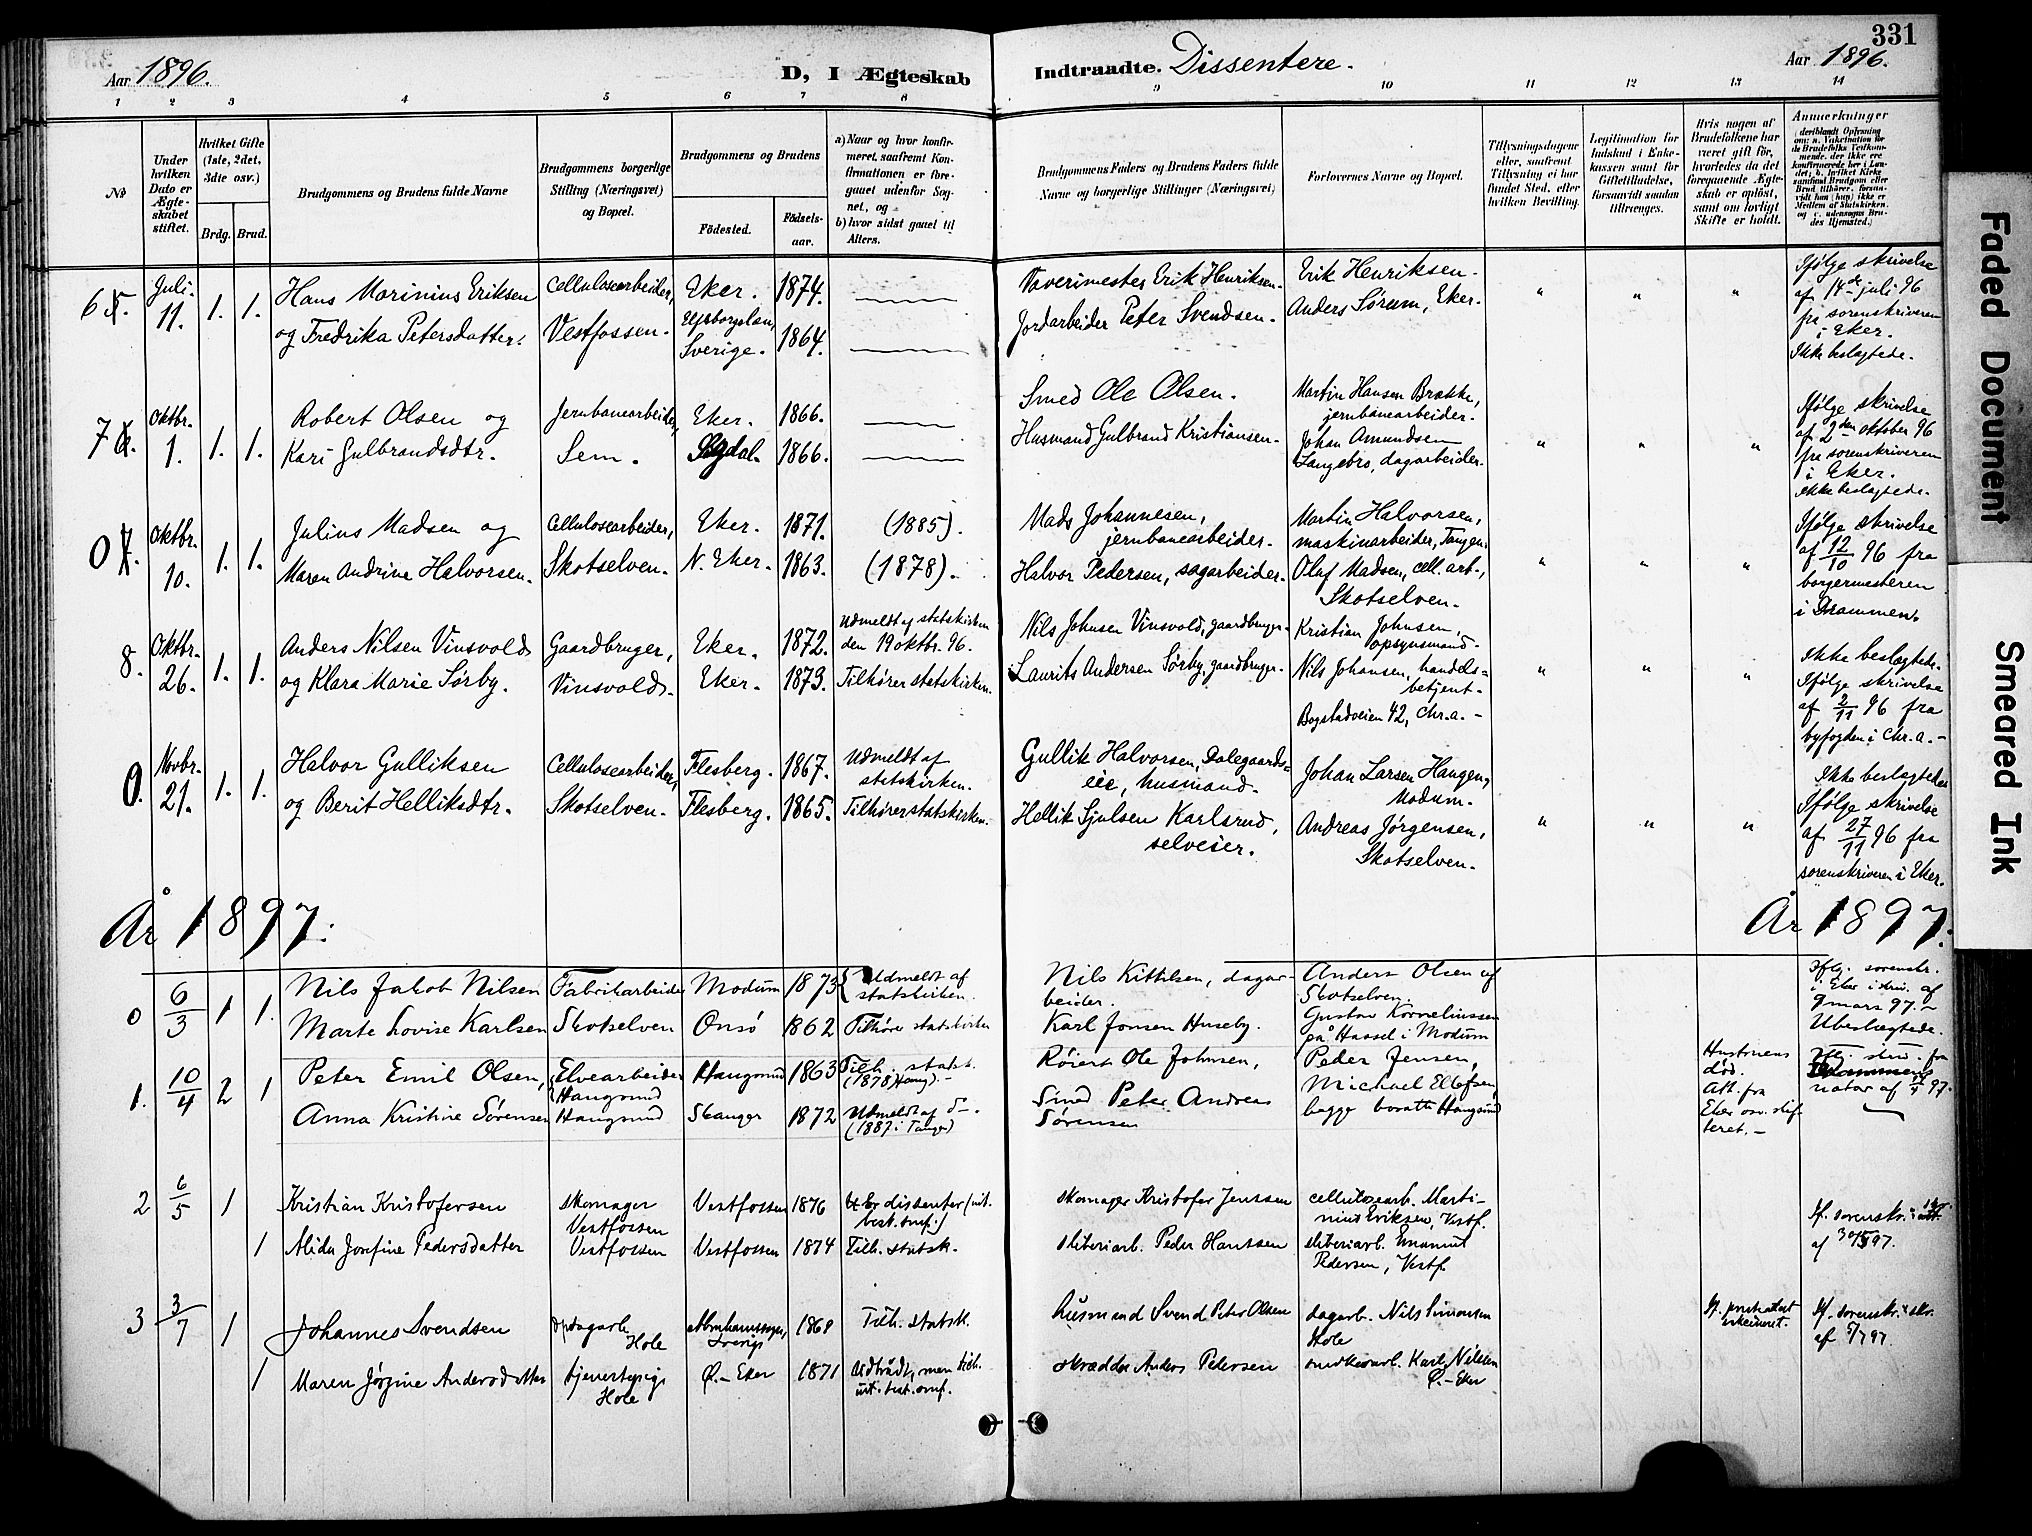 331
Aar 1896.
D, I Ægteskab Indtraadte. Dissentere.
Aar 1896.
1 2 3 4 5 6 7 8 9 10 11 12 13 14
No
Under hvilken Dato er Ægteskabet stiftet.
Hvilket Gifte (1ste, 2det, 3die osv.)
Brdg. Brud.
Brudgommens og Brudens fulde Navne
Brudgommens borgerlige Stilling (Næringsvei) og Bopæl.
Brudgommens og Brudens
Födested. Födsels-aar.
a) Naar og hvor konfirmeret, saafremt Konfirmationen er foregaaet udenfor Sognet, og
b) hvor sidst gaaet til Alters.
Brudgommens Faders og Brudens Faders fulde Navne og borgerlige Stillinger (Næringsvei)
Forlovernes Navne og Bopæl.
Tillysningsdagene eller, saafremt Tillysning ei har fundet Sted, efter hvilken Bevilling.
Legitimation for Indskud i Enkekassen samt for Giftetilladelse, forsaavidt saadan tiltrænges.
Hvis nogen af Brudefolkene har været gift før, hvorledes da det foregaaende Ægteskab er opløst, samt om lovligt Skifte er holdt.
Anmerkninger
6 Juli 11. 1. 1.
Hans Marinius Eriksen
og Fredrika Petersdatter.
Cellulosearbeider,
Vestfossen.
Eker. 1874.
Elfsborgslan, Sverige. 1864.
Erik Henriksen.
Jordarbeider Peter Svendsen.
Erik Henriksen.
Anders Sørum, Eker.
Ifølge skrivelse
af 14de juli 96
fra sorenskriveren
i Eker.
Ikke beslægtede.
7 Oktbr. 1. 1. 1.
Robert Olsen og
Kari Gulbrandsdtr.
Jernbanearbeider,
Sem.
Eker. 1866.
Sigdal. 1866.
Smed Ole Olsen.
Husmand Gulbrand Kristiansen.
Martin Hansen Brække,
jernbanearbeider.
Johan Amundsen
Langebro, dagarbeider.
Ifølge skrivelse
af 2den oktober 96
fra sorenskriveren
i Eker.
Ikke beslægtede.
0 Oktbr. 10. 1. 1.
Julius Madsen og
Maren Andrine Halvorsen.
Cellulosearbeider,
Skotselven.
Eker. 1871. (1885).
N. Eker. 1863. (1878).
Mads Johannesen,
jernbanearbeider.
Halvor Pedersen, sagarbeider.
Martin Halvorsen,
maskinarbeider, Tangen.
Olaf Madsen, cell. arb.,
Skotselven.
Ifølge skrivelse
af 12/10 96 fra
borgermesteren
i Drammen.
8. Oktbr. 26. 1. 1.
Anders Nilsen Vinsvold
og Klara Marie Sørby.
Gaardbruger,
Vinsvold.
Eker. 1872.
Eker. 1873.
Udmeldt af statskirken
den 19 oktbr. 96.
Tilhører statskirken.
Nils Johnsen Vinsvold, gaardbruger.
Laurits Andersen Sørby, gaardbruger.
Kristian Johnsen,
opsynsmand.
Nils Johansen, handels-
betjent.
Bogstadveien 42, Chr.a.
Ikke beslægtede.
Ifølge skrivelse
af 2/11 96 fra
byfogden i Chr.a.
0. Novbr. 21. 1. 1.
Halvor Gulliksen
og Berit Helliksdtr.
Cellulosearbeider,
Skotselven.
Flesberg. 1867.
Flesberg. 1865.
Udmeldt af
statskirken.
Tilhører statskirken.
Gullik Halvorsen Dalegaards-
eie, husmand.
Hellik Sjulsen Karlsrud,
selveier.
Johan Larsen Haugen,
Modum.
Andreas Jørgensen,
Skotselven.
Ikke beslægtede.
Ifølge skrivelse
af 27/11 96 fra
sorenskriveren i Eker.
År 1897.
År 1897.
0 6/3 1 1.
Nils Jakob Nilsen
Marte Lovise Karlsen
Fabrikarbeider
Skotselven
Modum 1873
Onsö 1862
Udmeldt af
statskirken.
Tilhører statskirken
Nils Kittilsen, dagar-
beider.
Karl Jonsen Huseby.
Anders Olsen af
Skotselven.
Gustav Kornelinssen
på Hassel i Modum
Iflg. sorenskr.
i Eker i skriv. af
9 mars 97.
Ubeslægtede.
1. 10/4 2 1
Peter Emil Olsen,
Anna Kristine Sørensen
Elvearbeider
Haugsund
Haugsund
Haugsund 1863
Stange 1872
Tilh. statsk.
(1878 Haug).
Udmeldt af d-.
(1887 i Tangen)
Ole Johnsen,
Smed Peter Andreas
Sørensen
Peder Jensen,
Michael Ellefsen
begge bosatte Haugsund
Hustruens
død.
Att. fra
Eker osv.
Iflg. skriv. fra
af 12/4 97.
2 6/5 1
Kristian Kristofersen
1 Alida Josefine Pedersdatter
skomager
Vestfossen
Vestfossen
Vestfossen 1876
Vestfossen 1874
Er dissenter
Tilh. statsk.
skomager Kristofer Jenssen
sliberiarb. Peder Hanssen
cellulosearb. Marti-
nius Eriksen, Vestf.
sliberiarb. Emanuel
Pedersen, Vestf.
If. sorenskr.
af 30/5 97.
3 3/7 1
Johannes Svendsen
1 Maren Jørgine Andersdatter
dagarb.
Hole
tjenestepige
Hole
Sverige 1868
Ø.-Eker 1871
Tilh. statsk.
Udtrådt, men tilh.
husmand Svend Peter Olsen
skrædder Anders Pedersen
dagarb. Nils Simonsen
Hole
Karl Nilsen
Ø.-Eker
If. sorenskr. skr.
af 5/7 97.
Faded Document
Smeared Ink